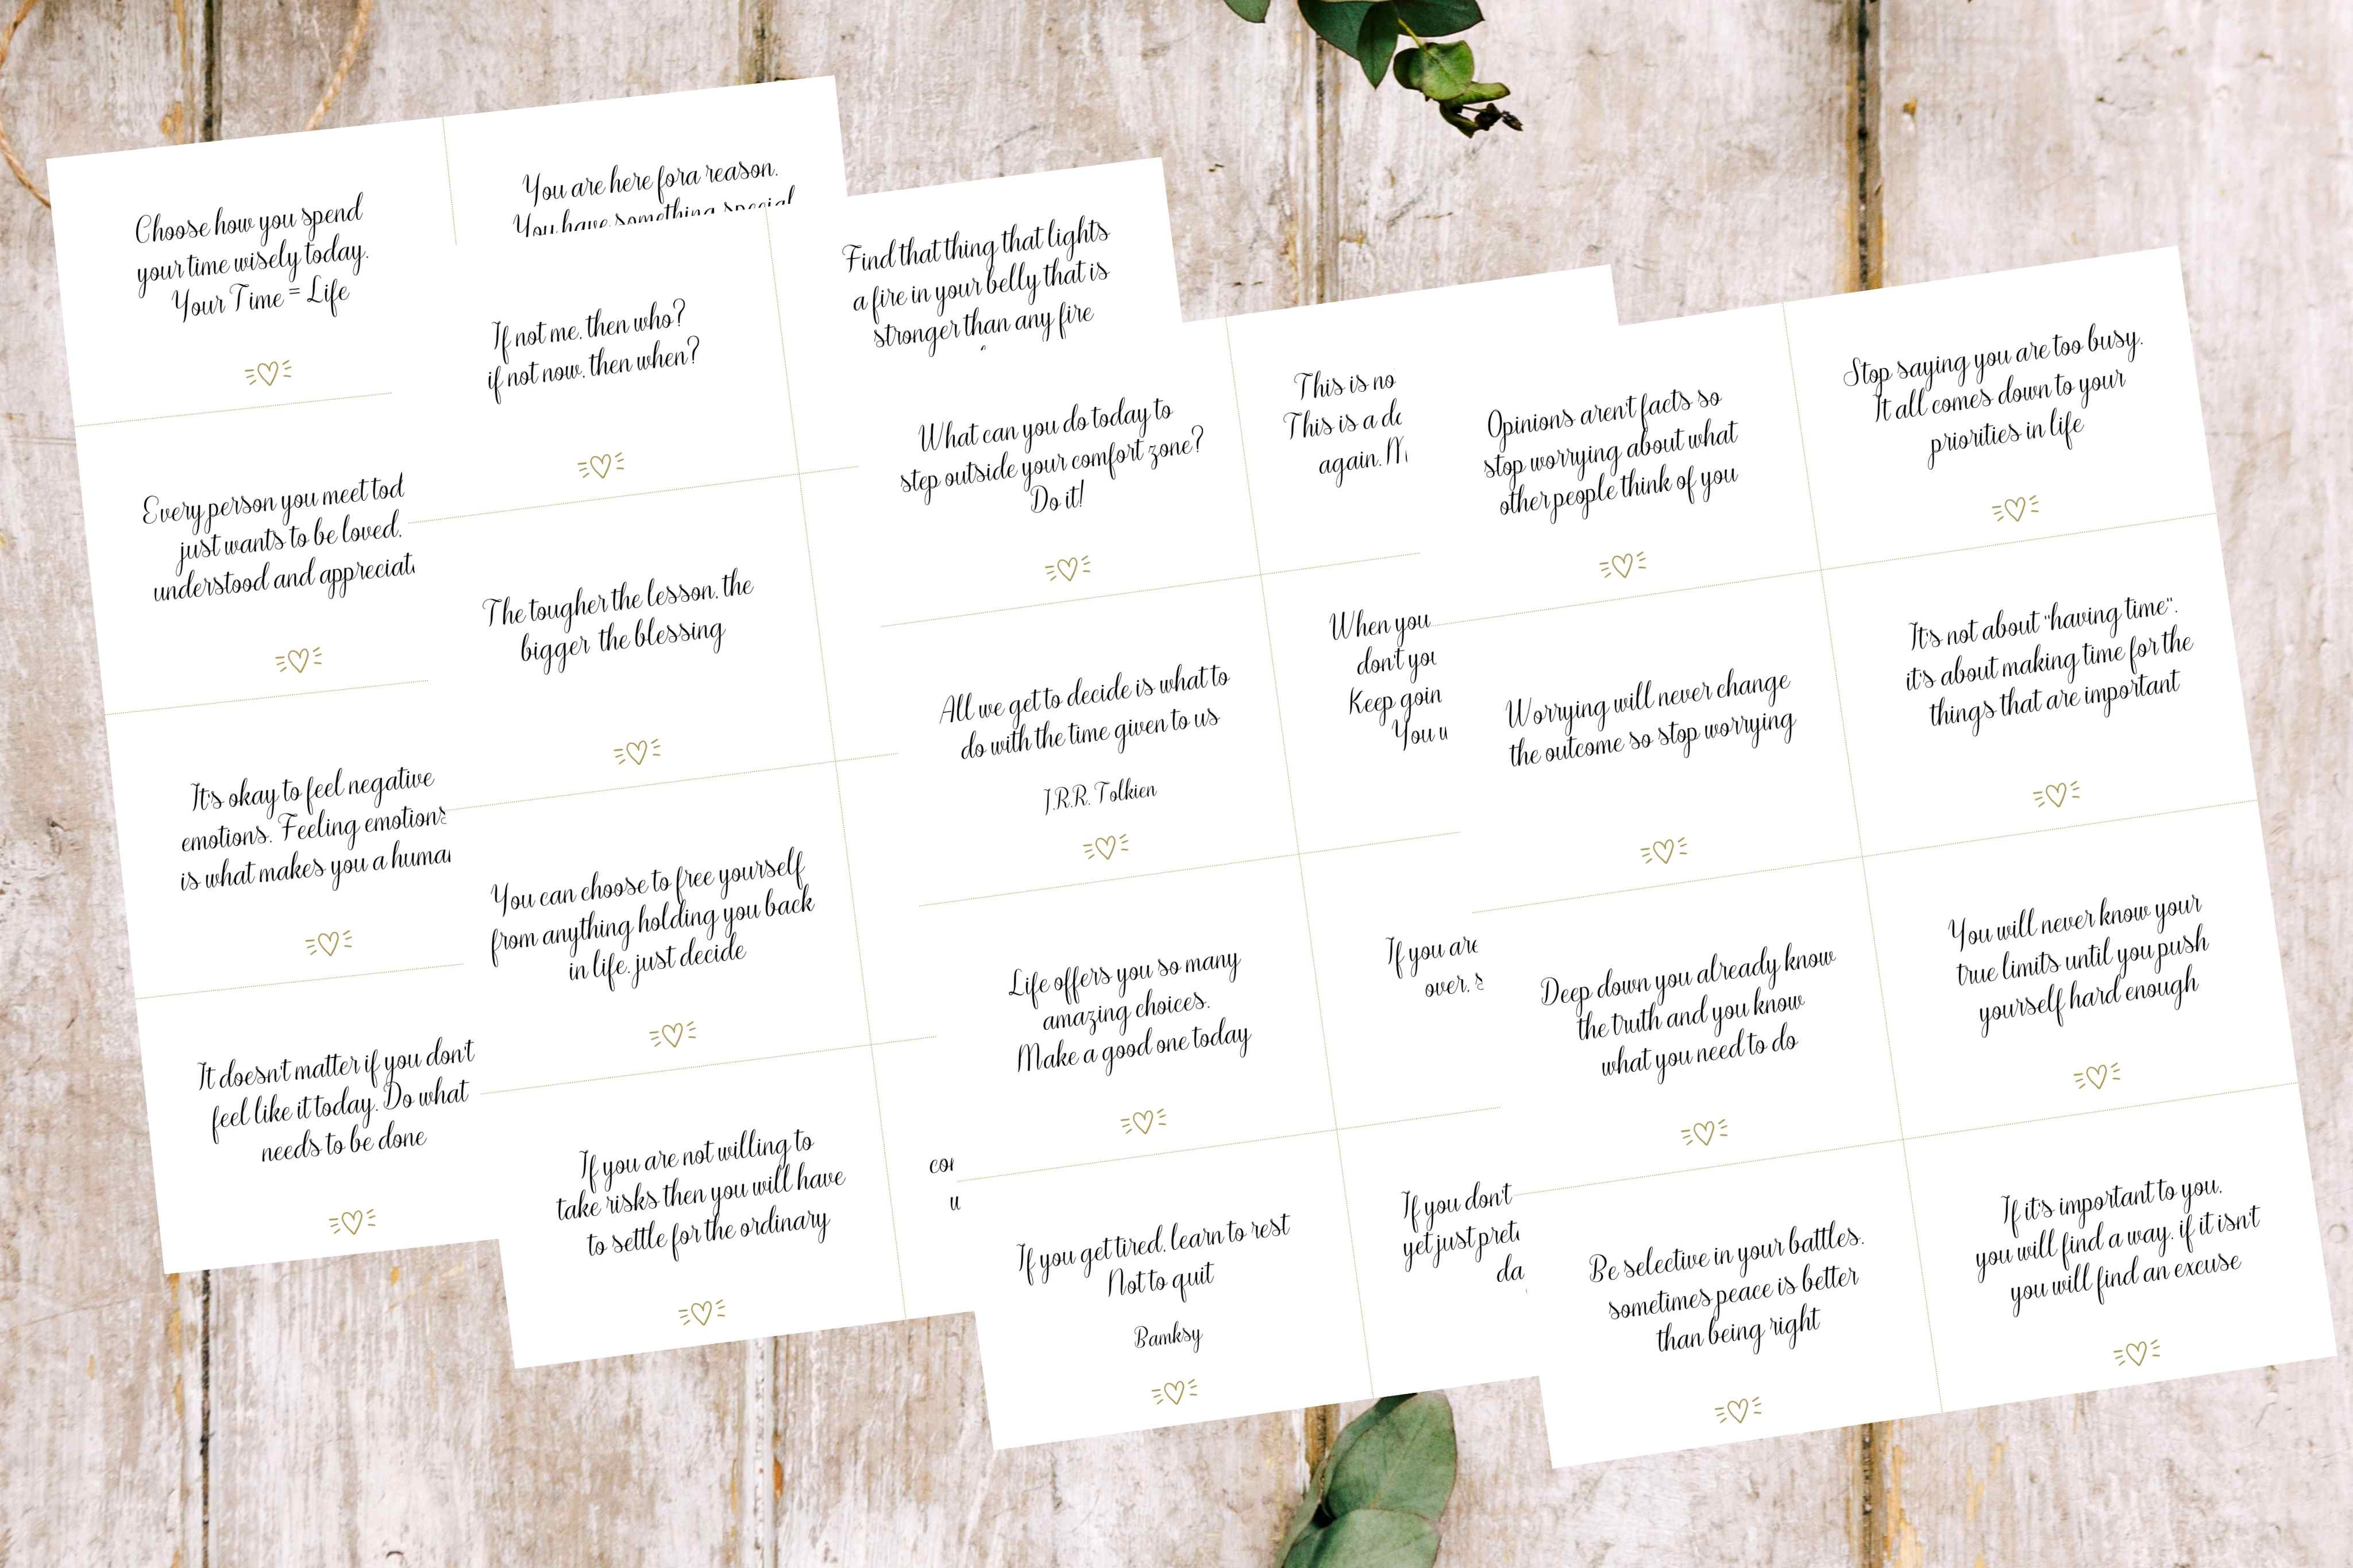 Choose how you spend
your time wisely today.
Your Time = Life
Every person you meet
just wants to be loved,
understood and
It's okay to feel negative
emotions. Feeling emotions
is what makes you a
It doesn't matter if you don't
feel like it today. Do what
needs to be done
You are here fora reason.
You have something special
If not me, then who?
if not now, then when?
The tougher the lesson, the
bigger the blessing
You can choose to free yourself
from anything holding you back
in life, just decide
If you are not willing to
take risks then you will have
to settle for the ordinary
Find that thing that lights
a fire in your belly that is
stronger than any fire
What can you do today to
step outside your comfort zone?
Do it!
All we get to decide is what to
do with the time given to us
J.R.R. Tolkien
Life offers you so many
amazing choices.
Make a good one today
If you get tired, learn to rest
Not to quit
Bamksy
This is no
This is a
again.
When you
don't
Keep
You
If you are
over,
If you don't
yet just
Opinions aren't facts so
stop worrying about what
other people think of you
Worrying will never change
the outcome so stop worrying
Deep down you already know
the truth and you know
what you need to do
Be selective in your battles,
sometimes peace is better
than being right
Stop saying you are too busy.
It all comes down to your
priorities in life
It's not about "having time",
it's about making time for the
things that are important
You will never know your
true limits until you push
yourself hard enough
If it's important to you,
you will find a way, if it isn't
you will find an excuse